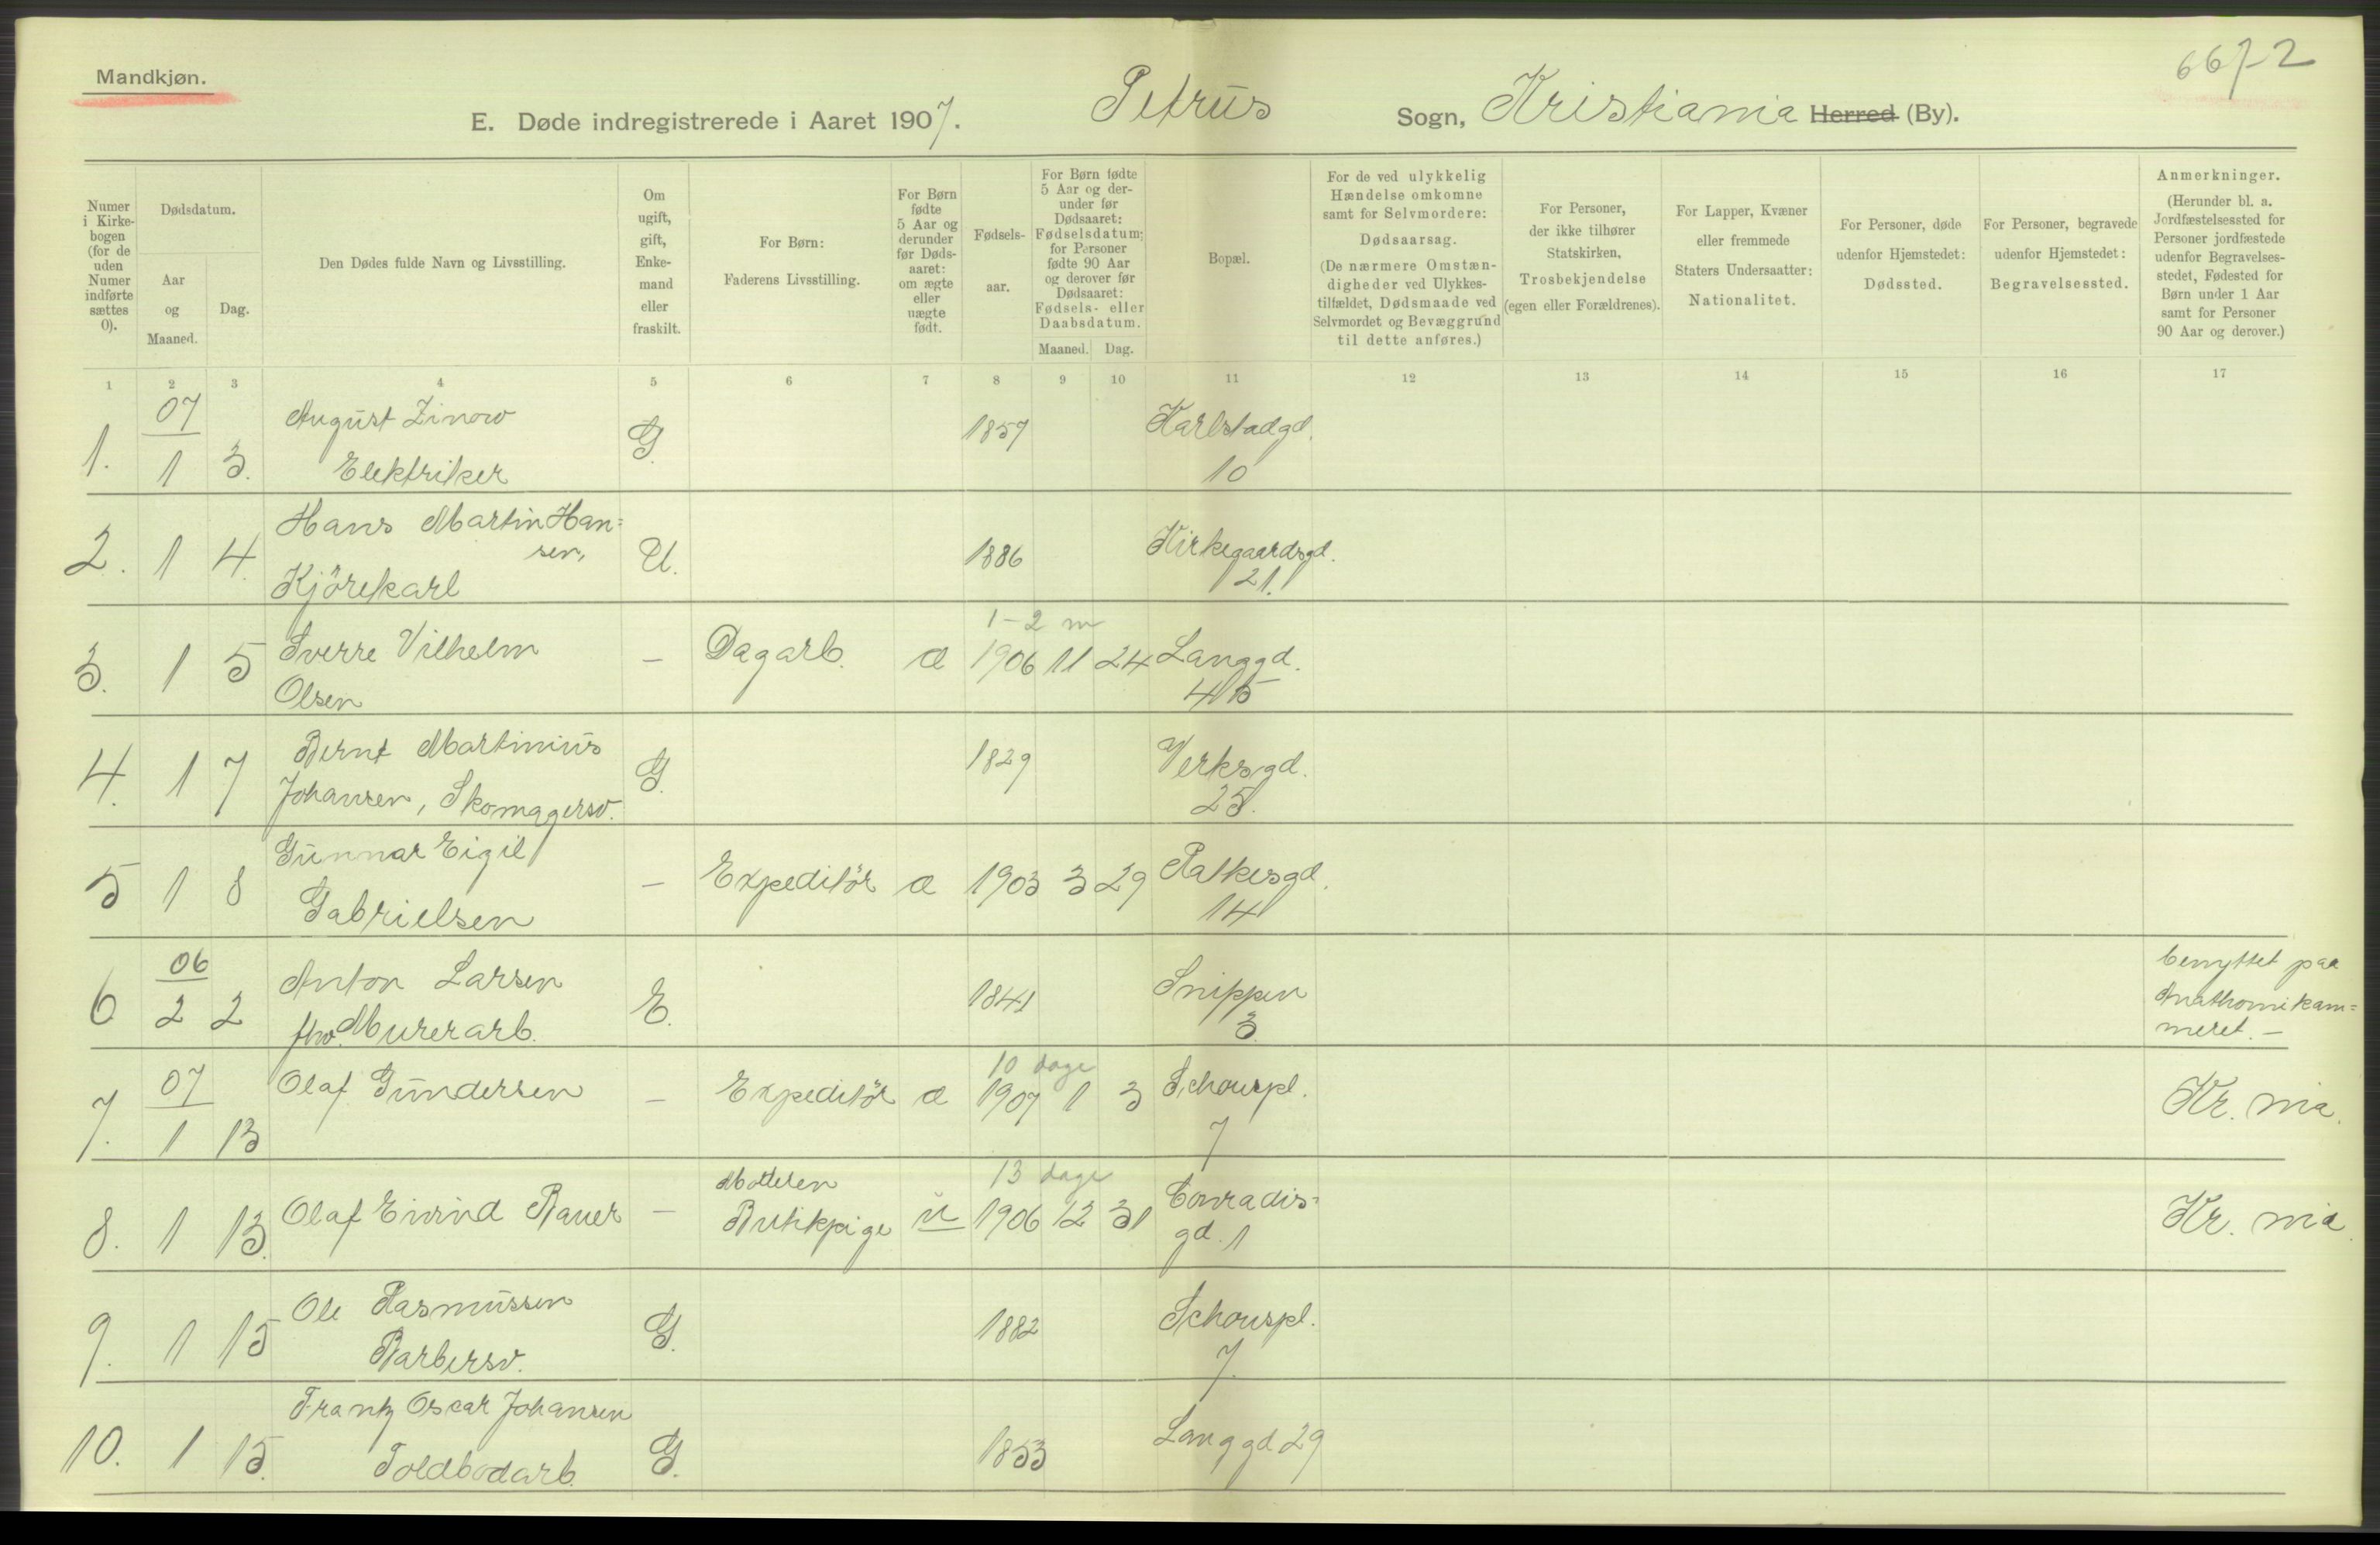 Mandkjøn.
667-2
E. Døde indregistrerede i Aaret 1907. Petrus Sogn, Kristiania Herred (By).
Numer i Kirkebogen (for de uden Numer indførte sættes 0).
Dødsdatum.
Aar og Maaned.
Dag.
Den Dødes fulde Navn og Livsstilling.
Om ugift, gift, Enkemand eller fraskilt.
For Børn: Faderens Livsstilling.
For Børn fødte 5 Aar og derunder før Dødsaaret: om ægte eller uægte født.
Fødselsaar.
For Børn fødte 5 Aar og derunder før Dødsaaret: Fødselsdatum; for Personer fødte 90 Aar og derover før Dødsaaret: Fødsels- eller Daabsdatum.
Maaned. Dag.
Bopæl.
For de ved ulykkelig Hændelse omkomne samt for Selvmordere: Dødsaarsag. (De nærmere Omstændigheder ved Ulykkestilfældet, Dødsmaade ved Selvmordet og Bevæggrund til dette anføres.)
For Personer, der ikke tilhører Statskirken, Trosbekjendelse (egen eller Forældrenes).
For Lapper, Kvæner eller fremmede Staters Undersaatter: Nationalitet.
For Personer, døde udenfor Hjemstedet: Dødssted.
For Personer, begravede udenfor Hjemstedet: Begravelsessted.
Anmerkninger. (Herunder bl. a. Jordfæstelsessted for Personer jordfæstede udenfor Begravelsesstedet, Fødested for Børn under 1 Aar samt for Personer 90 Aar og derover.)
1 2 3 4 5 6 7 8 9 10 11 12 13 14 15 16 17
07 August Zinow 1857 Karlstadgd.
1. 1 3. Elektriker G. 10
Hans Martin Han=
2. 1 4. sen, U. 1886 Kirkegaardsgd.
Kjörekarl 21.
1-2 m
3. 1 5 Sverre Vilhelm - Dagarb. æ 1906 11 24 Langgd.
Olsen 45
4. 1 7 Bernt Martinius G. 1829 Verksgd.
Johansen, Skomagersv. 25.
5 1 8 Gunnar Eigil - Expeditör æ 1903 3 29 Falkesgd.
Gabrielsen 14
06 Anton Larsen 1841 Snippen benyttet paa
6 2 2 fhv. Murerarb. E. 3 Anathomikam=
meret. -
10 dage
07 Olaf Gundersen - Expeditör æ 1907 1 3 Schouspl. Kr. nia.
7. 1 13 7
Moderen 13 dage
8. 1 13. Olaf Eivind Bauer - Butikpige u 1906 12 31 Conradis=
gd. 1 Kr. nia.
9. 1 15 Ole Rasmussen G. 1882 Schouspl.
Barbersv. 7.
Frantz Oscar Johansen
10. 1 15. Toldbodarb. G. 1853 Langgd 29